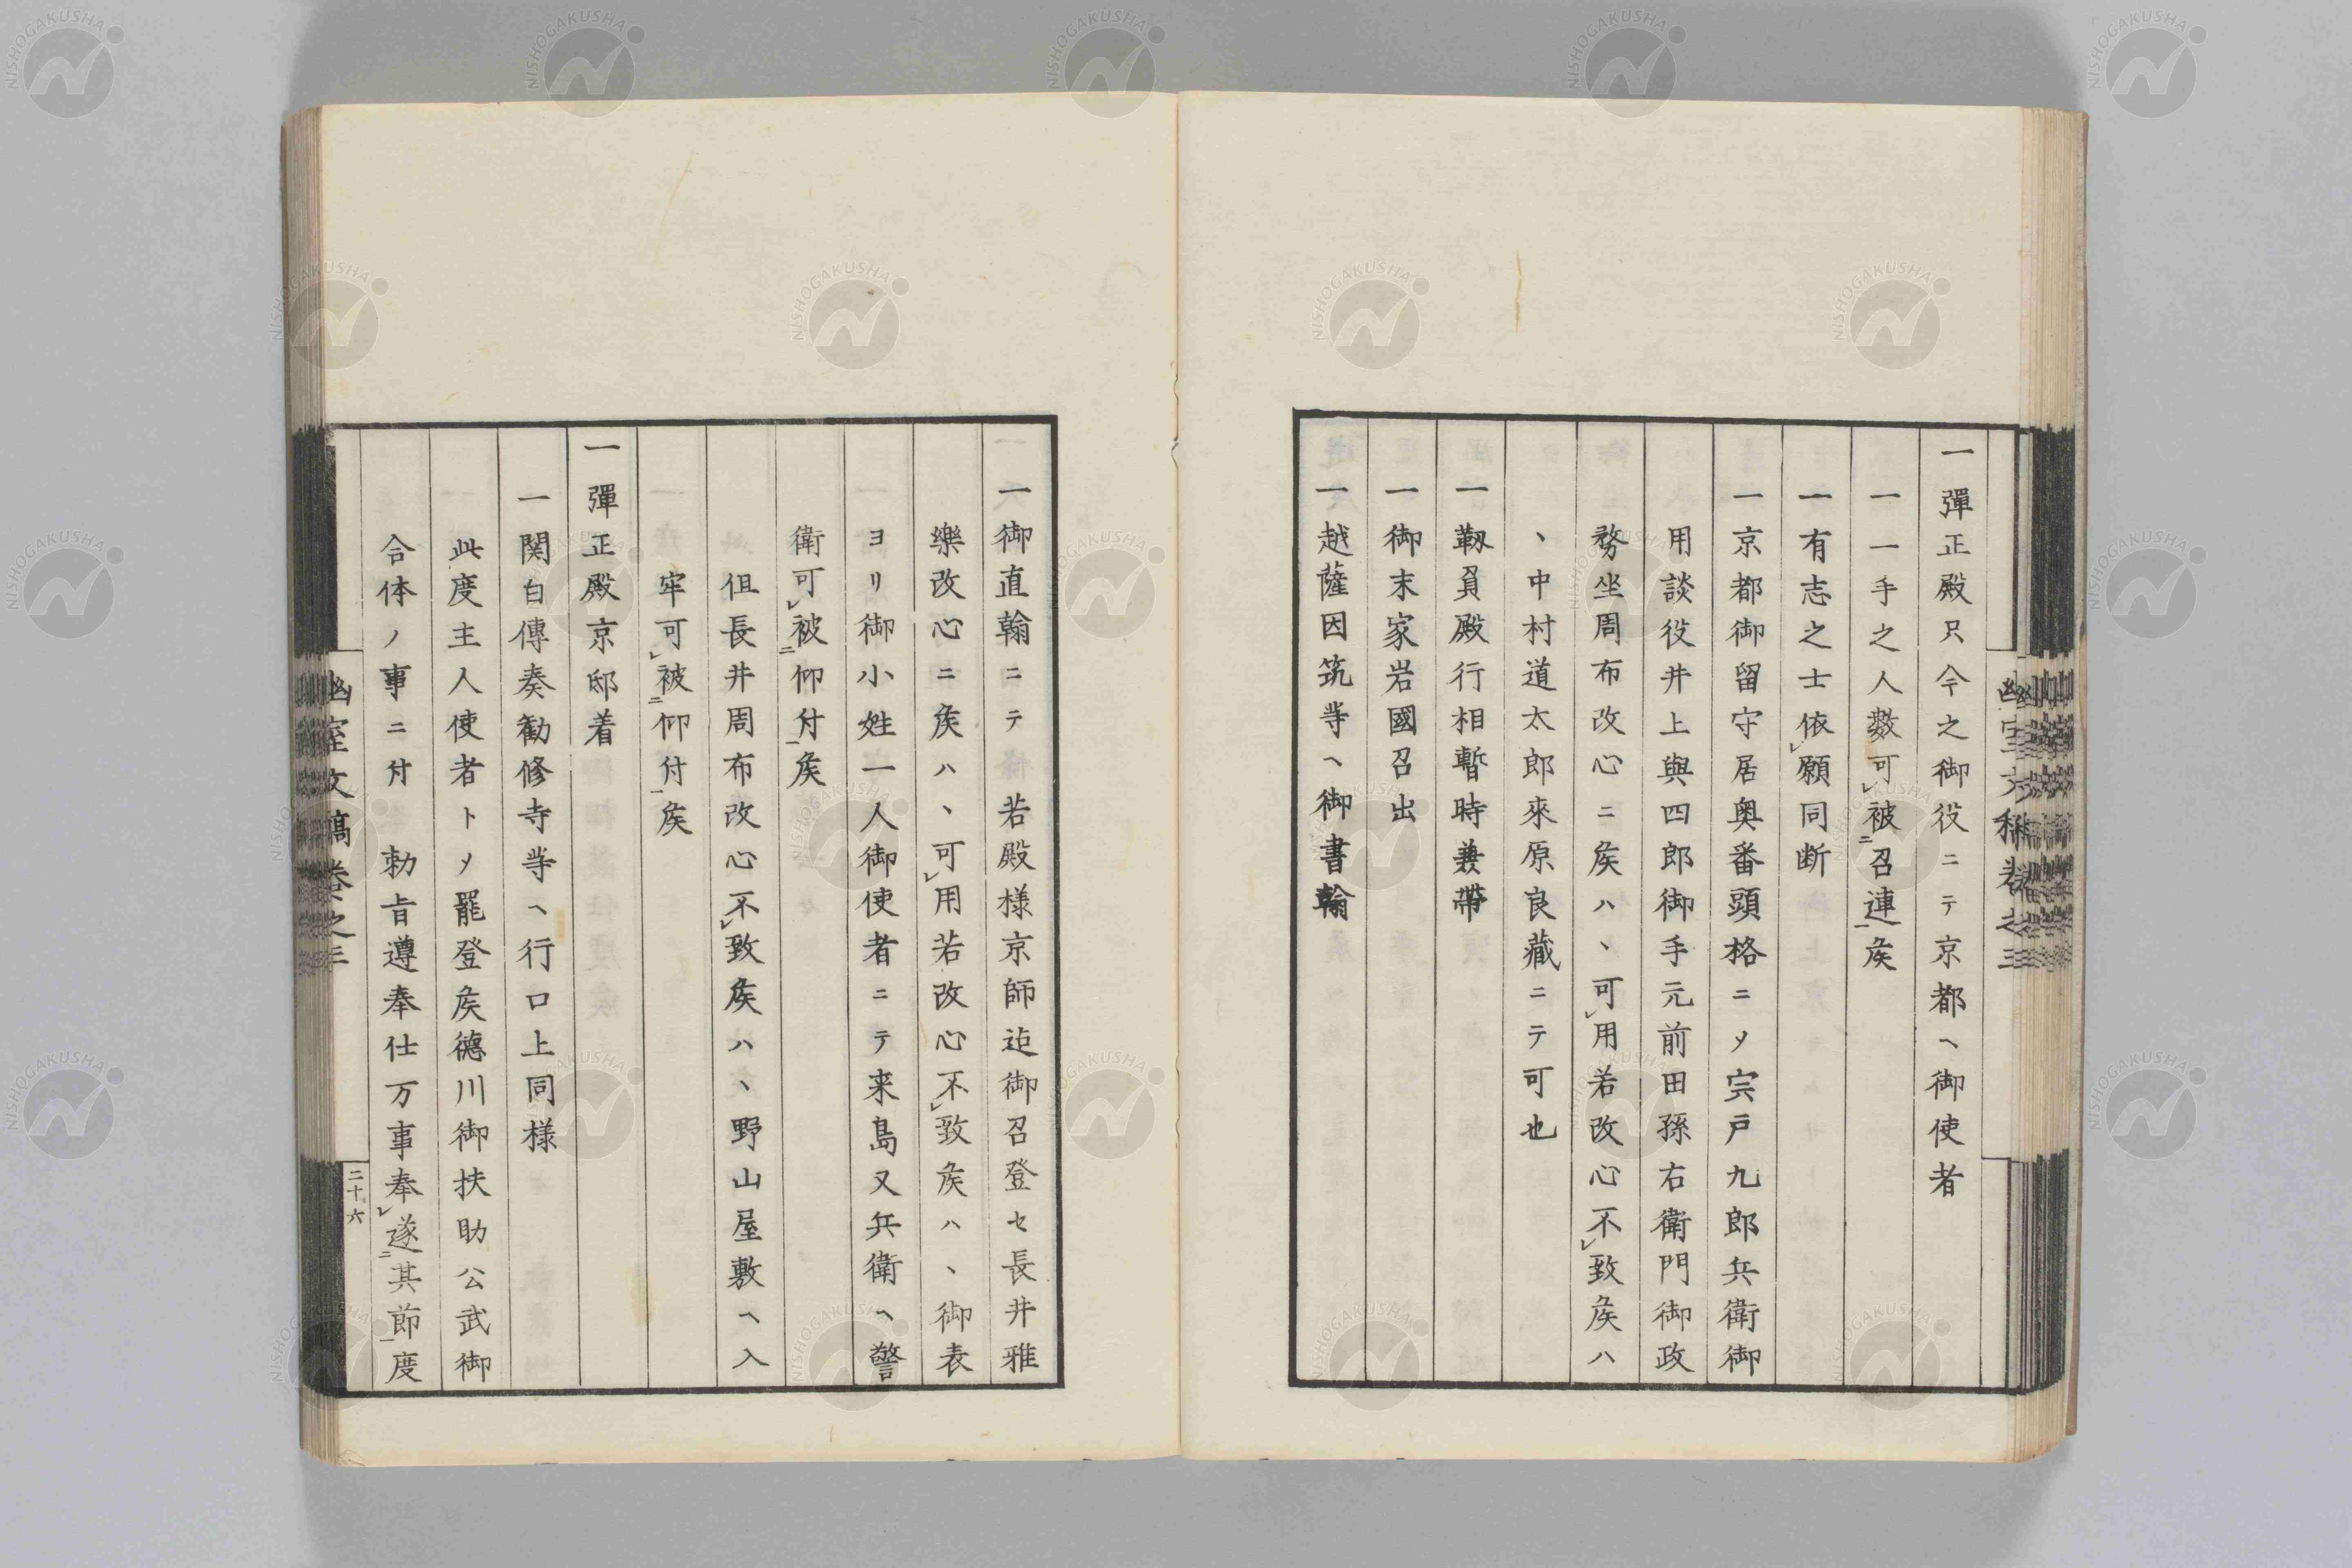 一彈正殿只今之御役ニテ京都ヘ御使者
一一手之人數可㆑被㆓召連㆒矦
一有志之士依㆑願同断
一京都御留守居奥番頭格ニメ宍戸九郎兵衛御
用談役井上與四郎御手元前田孫右衛門御政
務坐周布改心ニ矦ハヽ可㆑用若改心不㆑致矦ハ
ヽ中村道太郎來原良藏ニテ可也
一靱負殿行相暫時兼帶
一御末家岩國召出
一越薩因筑等ヘ御書翰
一御直翰ニテ 若殿様京師迄御召登セ長井雅
樂改心ニ矦ハヽ可㆑用若改心不㆑致矦ハヽ御表
ヨリ御小姓一人御使者ニテ来島又兵衛ヘ警
衛可㆑被㆓仰付㆒矦
但長井周布改心不㆑致矦ハヽ野山屋敷ヘ入
牢可㆑被㆓仰付㆒矦
一彈正殿京邸着
一関白傳奏勸修寺等ヘ行口上同様
此度主人使者トメ罷登矦德川御扶助公武御
合体ノ事ニ付 勅旨遵奉仕万事奉㆑遂㆓其節㆒度
幽室文稿卷之三
二十六